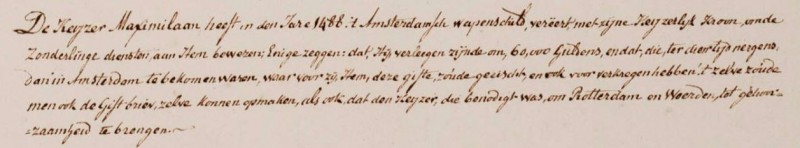 De Keyzer Maximilaan heeft in den Jare 1488. 't Amsterdamsch Wapenschild, verëerd, met zijne Keyzerlijk Kroon, om de
Zonderlinge diensten, aan Hem bewezen; Enige zeggen: dat, Hij verleegen zijnde om, 60,000 Guldens, en dat, die, tër dier tijd nergens,
dan in Amsterdam te bekomen waren, waar voor zij, Hem, deze gifte, zoude geeischt, en ook voor verkregen hebben. 't zelve zoude
men ook de Gift briev, zelve konnen opmaken, als ook, dat den Keyzer, die benodigt was, om Rotterdam en Woerden, tot gehoor-
=zaamheid te brengen.~